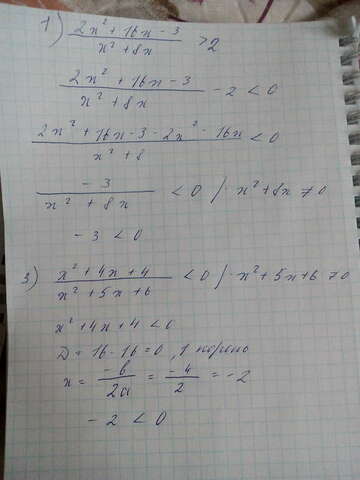 1) (2x² + 16x - 3)/(x² + 8x) > 2
(2x² + 16x - 3)/(x² + 8x) - 2 < 0
(2x² + 16x - 3 - 2x² - 16x)/(x² + 8) < 0
(- 3)/(x² + 8x) < 0 / · x² + 8x ≠ 0
- 3 < 0
3) (x² + 4x + 4)/(x² + 5x + 6) < 0 / · x² + 5x + 6 ≠ 0
x² + 4x + 4 < 0
D = 16 - 16 = 0, 1 корень
x = -b/2a = -4/2 = -2
- 2 < 0